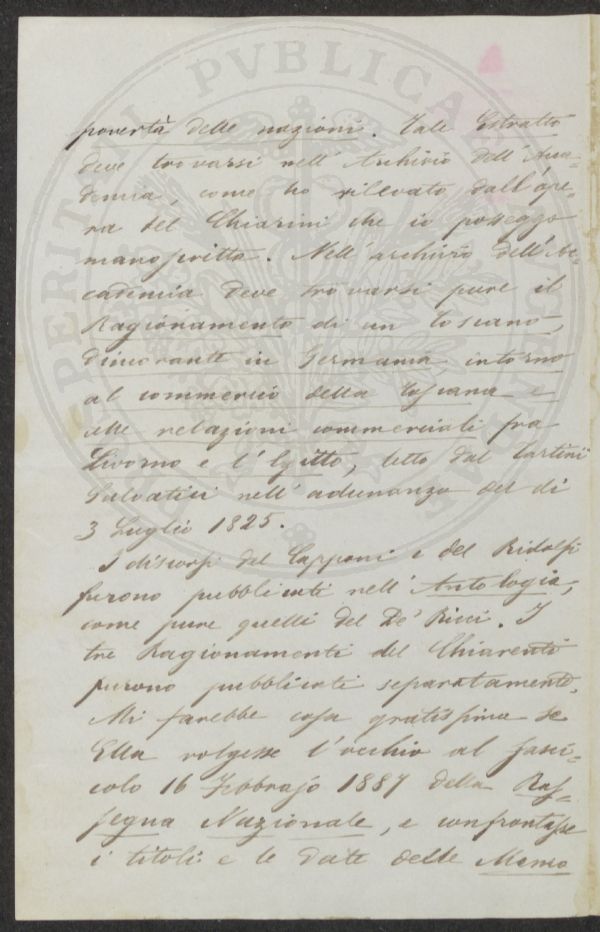 povertà delle nazioni. Tale Estratto
deve trovarsi nell'Archivio dell'Acca=
demia, come ho rilevato dall'ope=
ra del Chiarini che io posseggo
manoscritta. Nell'archivio dell'Ac=
cademia deve trovarsi pure il
Ragionamento di un toscano,
dimorante in Germania, intorno
al commercio della Toscana e
alle relazioni commerciali fra
Livorno e l'Egitto, letto dal Tartini
Salvatici nell'adunanza del di
3 Luglio 1825.
I discorsi del Capponi e del Ridolfi
furono pubblicati nell'Antologia,
come pure quelli del De' Ricci. I
tre Ragionamenti del Chiarenti
furono pubblicati separatamente.
Mi farebbe cosa gratissima se
Ella volgesse l'occhio al fasci=
colo 16 Febbrajo 1887 della Ras=
segna Nazionale, e confrontasse
i titoli e le date delle Memo